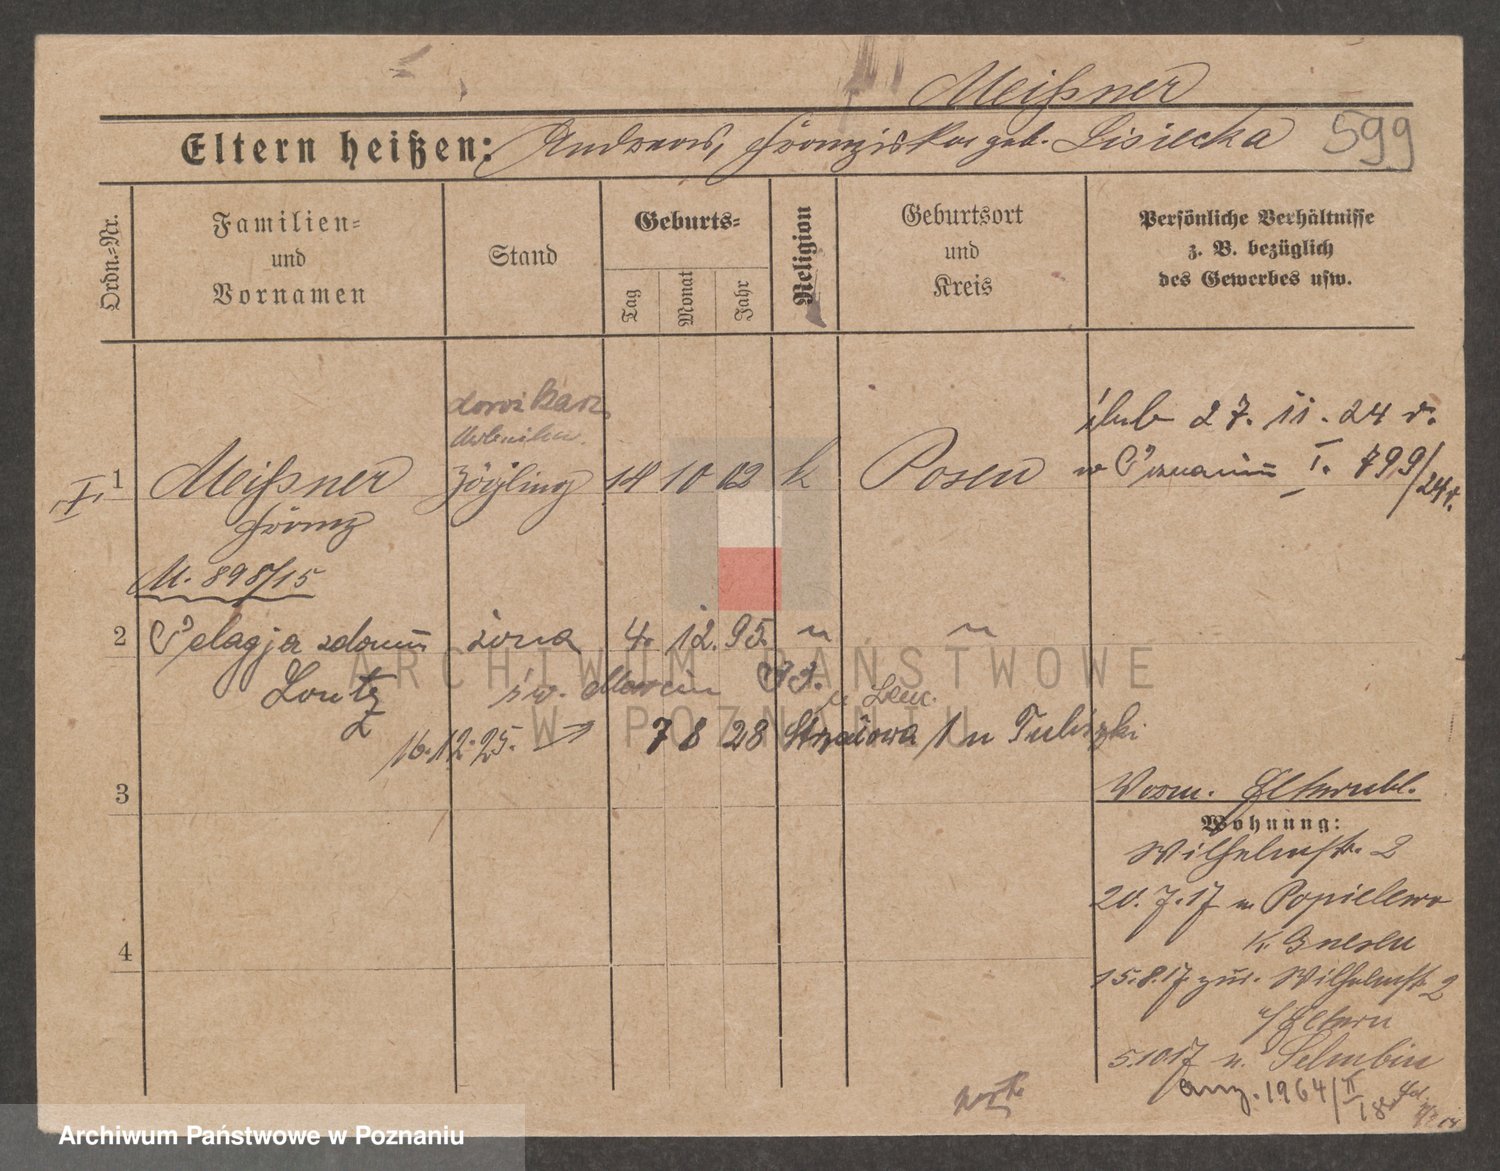 Meißner
Eltern heißen: Andreas, Franziska geb. Lisiecka 599
Ordn.=Nr.
Familien=
und
Vornamen
Stand
Geburts=
Tag
Monat
Jahr
Religion
Geburtsort
und
Kreis
Persönliche Verhältnisse
z. B. bezüglich
des Gewerbes usw.
dorożkarz
ślub 27.11.24 r.
I. 1 Meißner Zögling 14 10 02 k Posen w Poznaniu I. 799/24r.
Franz
M. 898/15
2 Pelagja zdomu żona 4. 12. 95. " "
Lontz św. Marcin
16.12.25. 7 8 28 1 u Tuliszki
3
Wohnung:
Wilhelmstr. 2
20.7.17 n Popielewo
K. Gnesen
15.8.17 zur. Wilhelmstr. 2
b/Eltern
4
5.10.17 n.
ang. 1964/II 18
ARCHIWUM PAŃSTWOWE
W POZNANIU
Archiwum Państwowe w Poznaniu